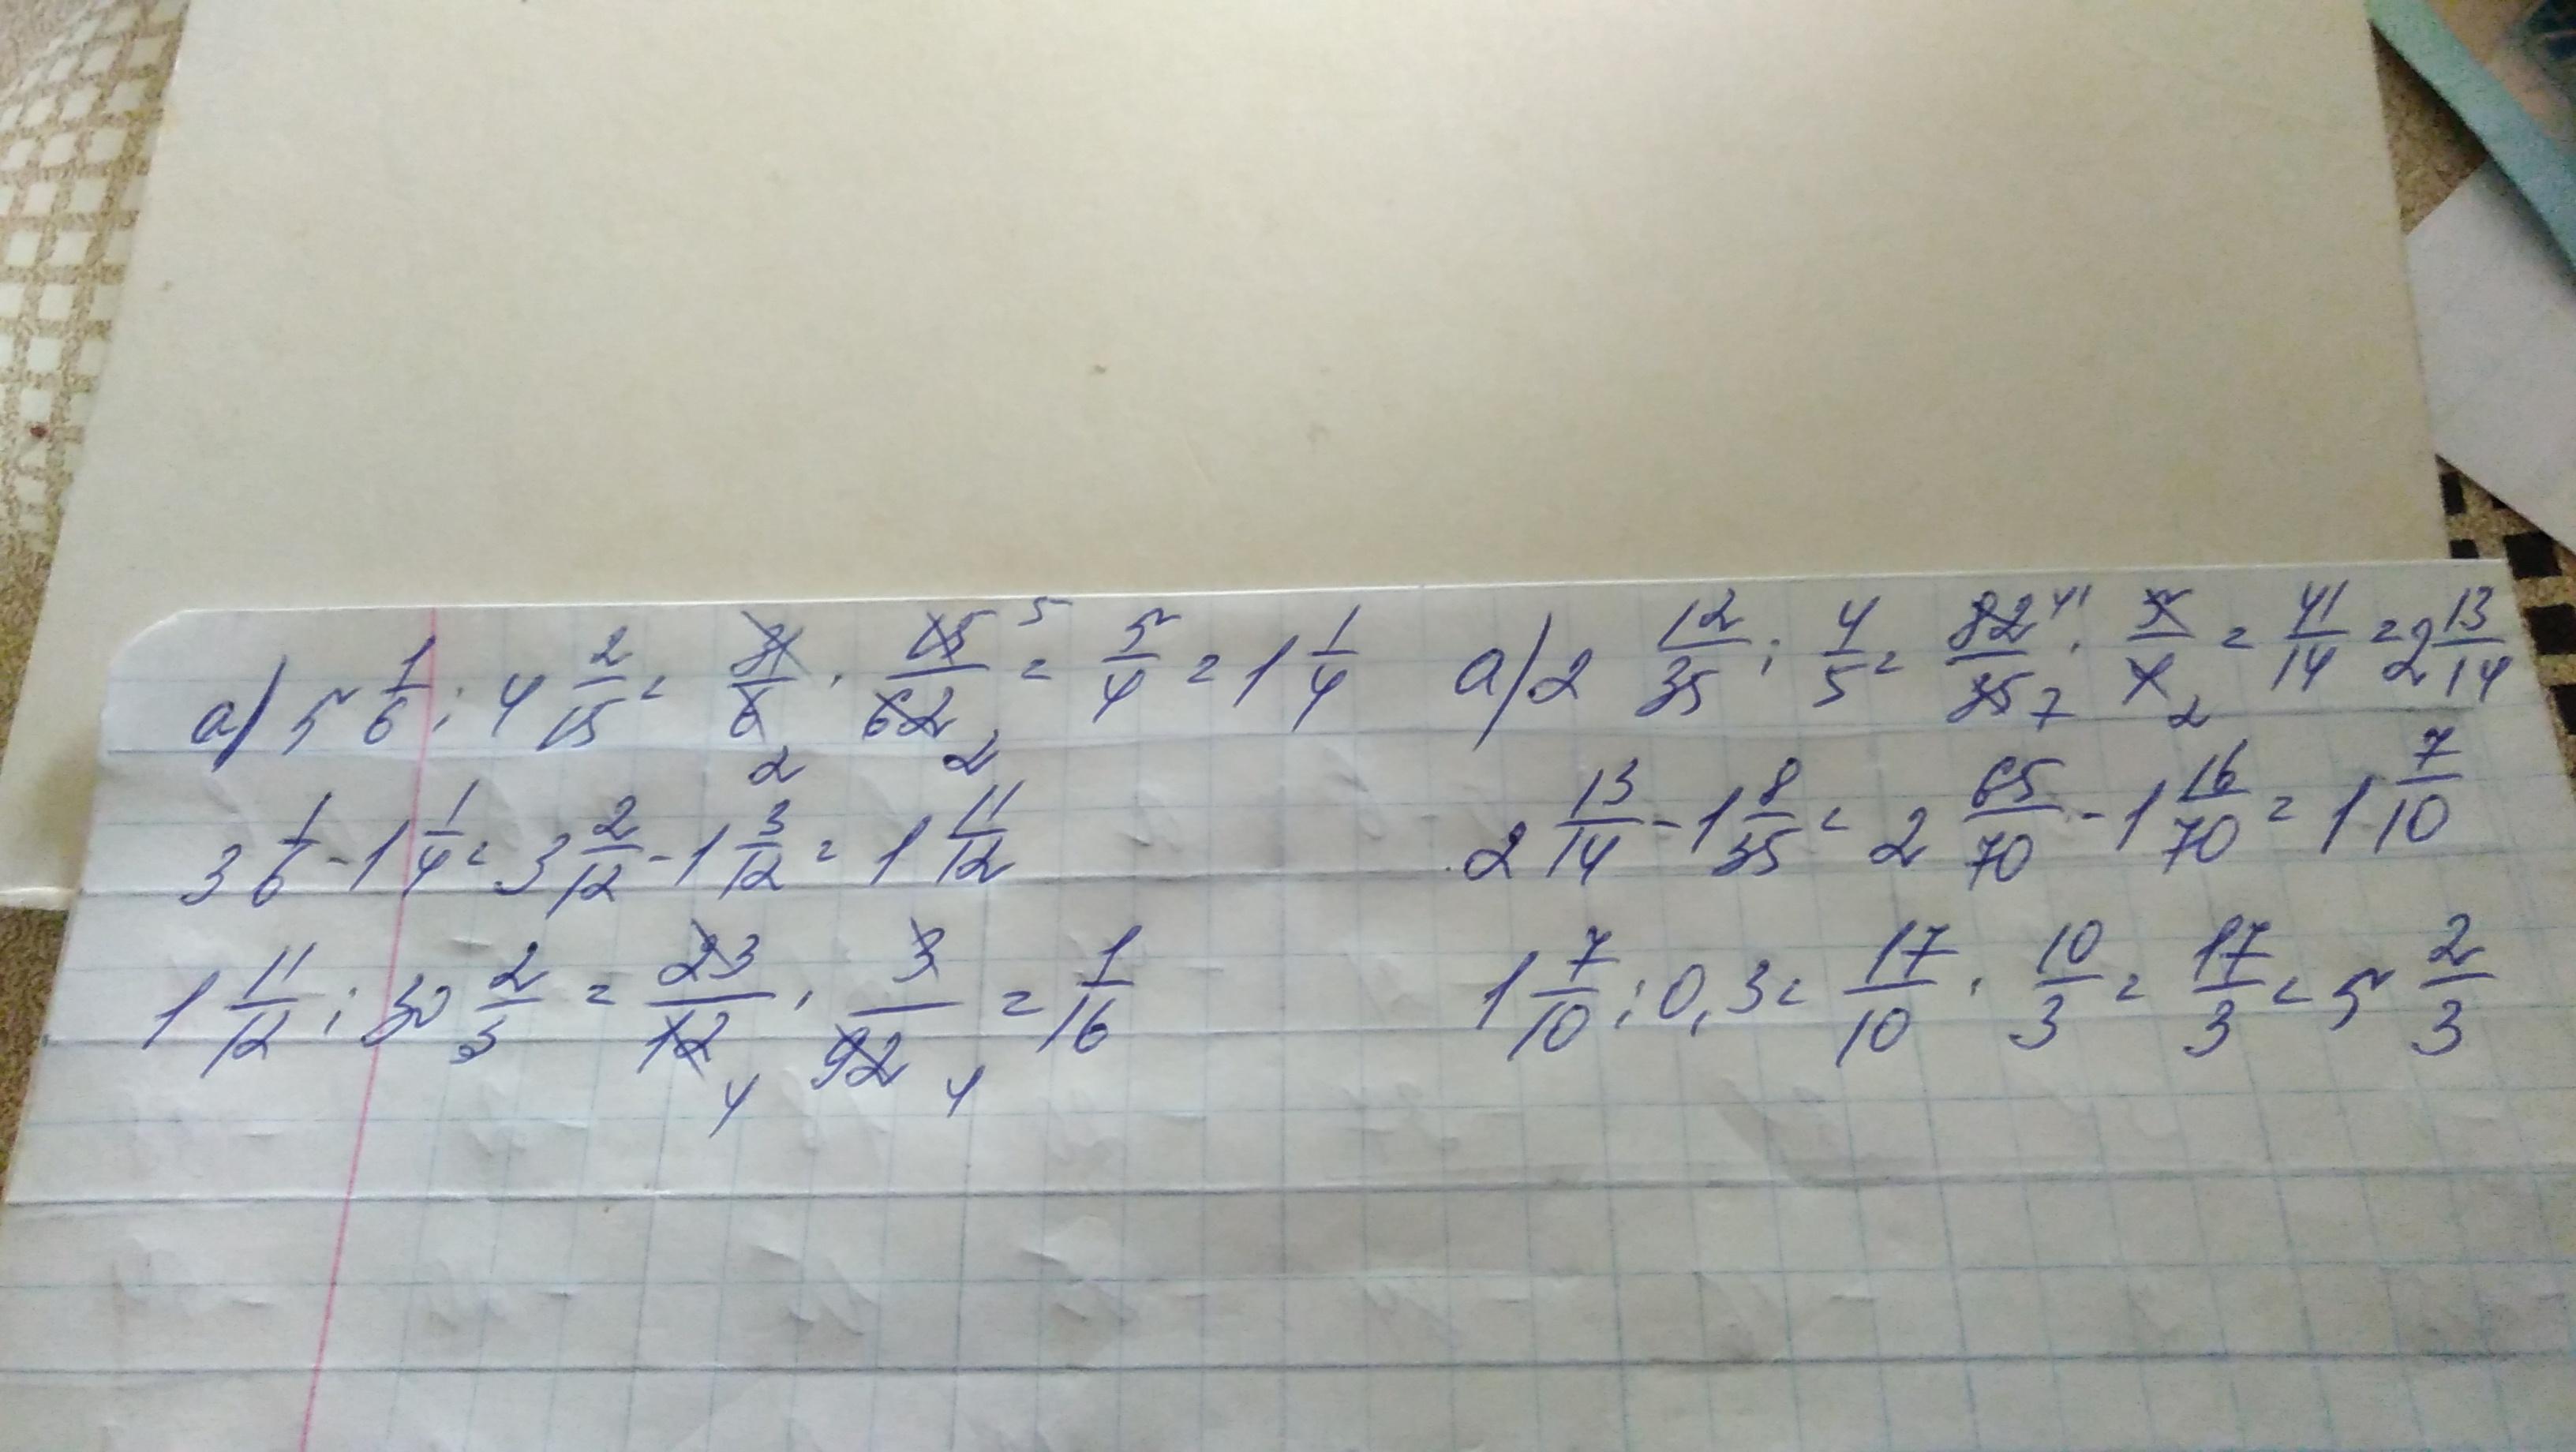 а) 5 1/6 : 4 2/15 = 31/6 2 · 15/62 5 2 = 5/4 = 1 1/4
3 1/6 - 1 1/4 = 3 2/12 - 1 3/12 = 1 11/12
1 11/12 : 30 2/3 = 23/12 4 · 3/92 4 = 1/16
а) 2 12/35 : 4/5 = 82/35 41 7 · 5/4 2 = 41/14 = 2 13/14
2 13/14 - 1 8/35 = 2 65/70 - 1 16/70 = 1 7/10
1 7/10 : 0,3 = 17/10 · 10/3 = 17/3 = 5 2/3